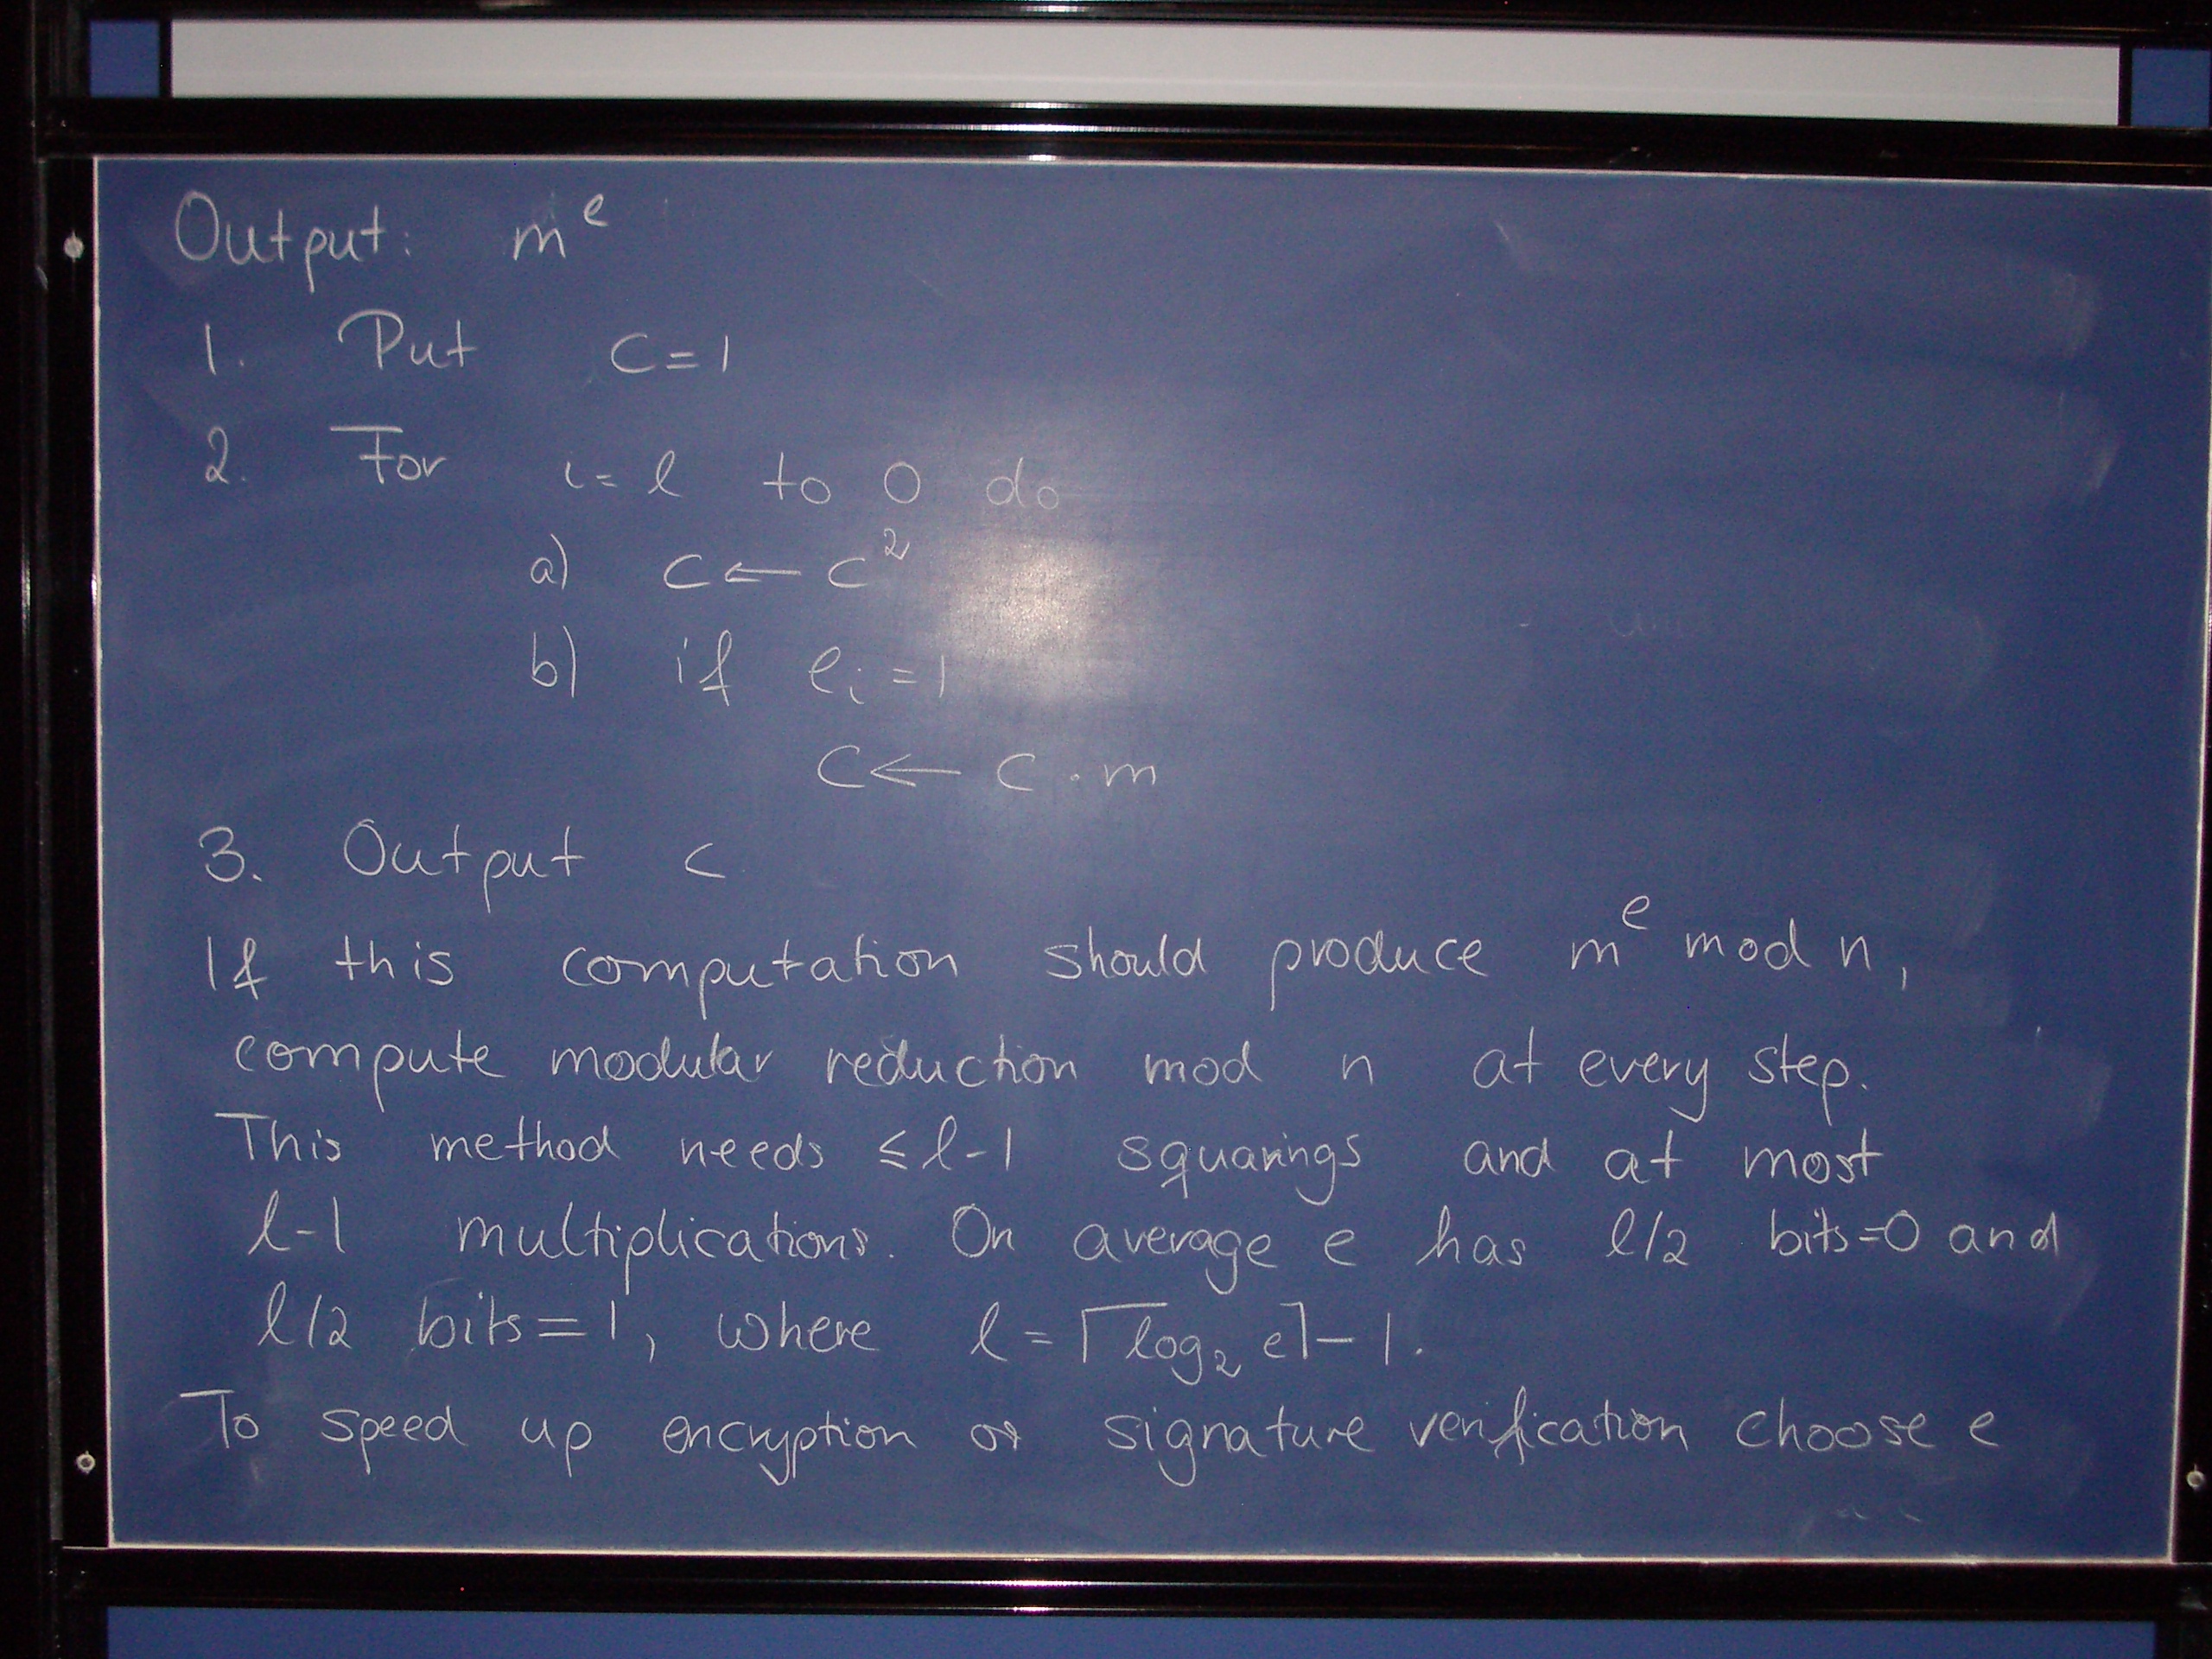 Output: m^e
1. Put c=1
2. For i=l to 0 do
a) c ← c²
b) if e_i=1
c ← c·m
3. Output c
If this computation should produce m^e mod n,
compute modular reduction mod n at every step.
This method needs ≤l-1 squarings and at most
l-1 multiplications. On average e has l/2 bits=0 and
l/2 bits=1, where l=⌈log₂ e⌉-1.
To speed up encryption or signature verification choose e